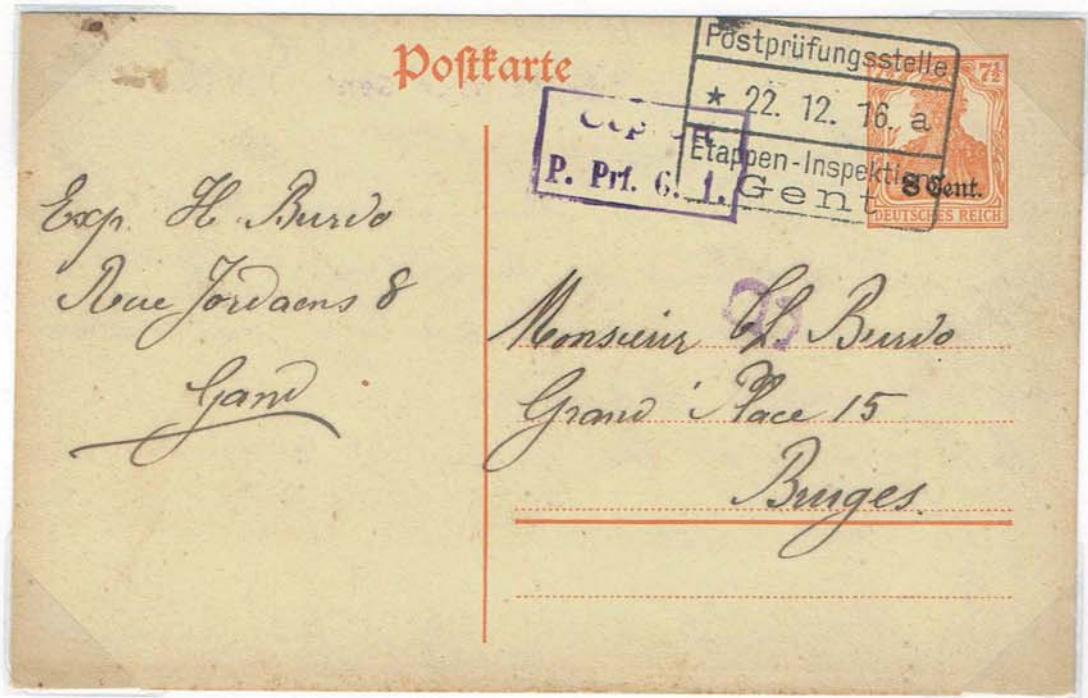 Postkarte
Postprüfungsstelle
* 22. 12. 16. a
Etappen-Inspektion
Gent
P. Prf. G. 1.
7½
8 Cent.
DEUTSCHES REICH
Exp. H Burvo
Rue Jordaens 8
Gand
Monsieur Burvo
Grand Place 15
Bruges.